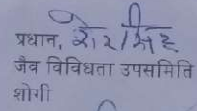 प्रधान, शेर सिंह
जैव विविधता उपसमिति
शोगी